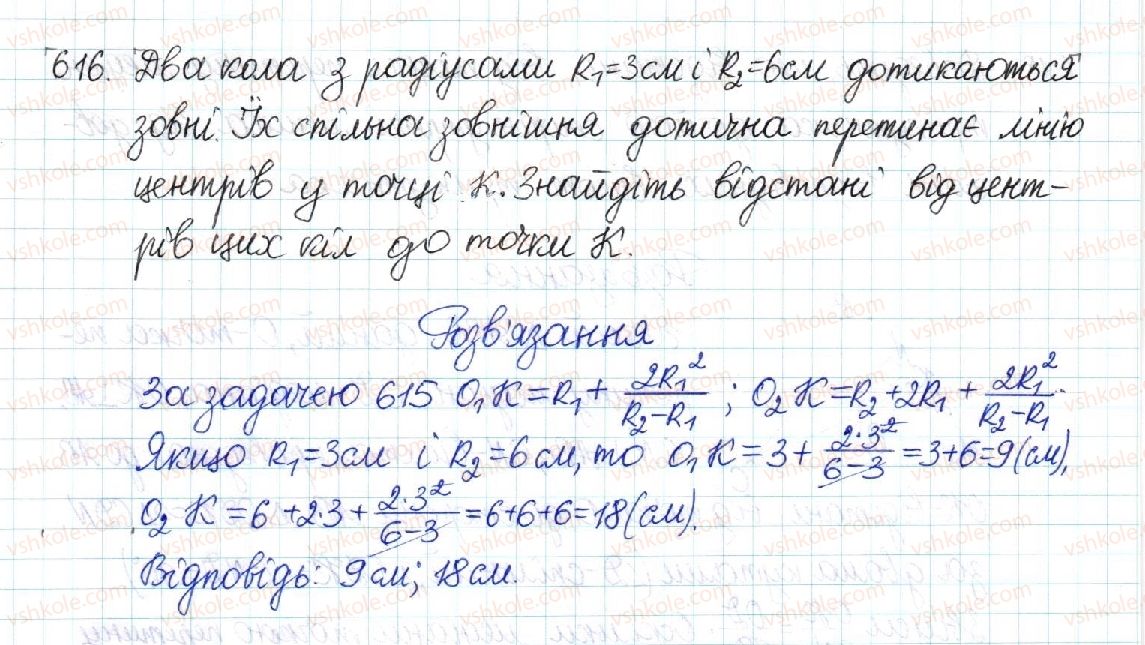 616. Два кола з радіусами R₁=3см і R₂=6см дотикаються
зовні. Їх спільна зовнішня дотична перетинає лінію
центрів у точці К. Знайдіть відстані від цент-
рів цих кіл до точки К.
Розв'язання
За задачею 615 O₁K=R₁+ 2R₁²/(R₂-R₁); O₂K=R₂+2R₁+ 2R₁²/(R₂-R₁).
Якщо R₁=3см і R₂=6см, то O₁K=3+ 2·3²/(6-3) =3+6=9(см),
O₂K=6+2·3+ 2·3²/(6-3) =6+6+6=18(см).
Відповідь: 9см; 18см.